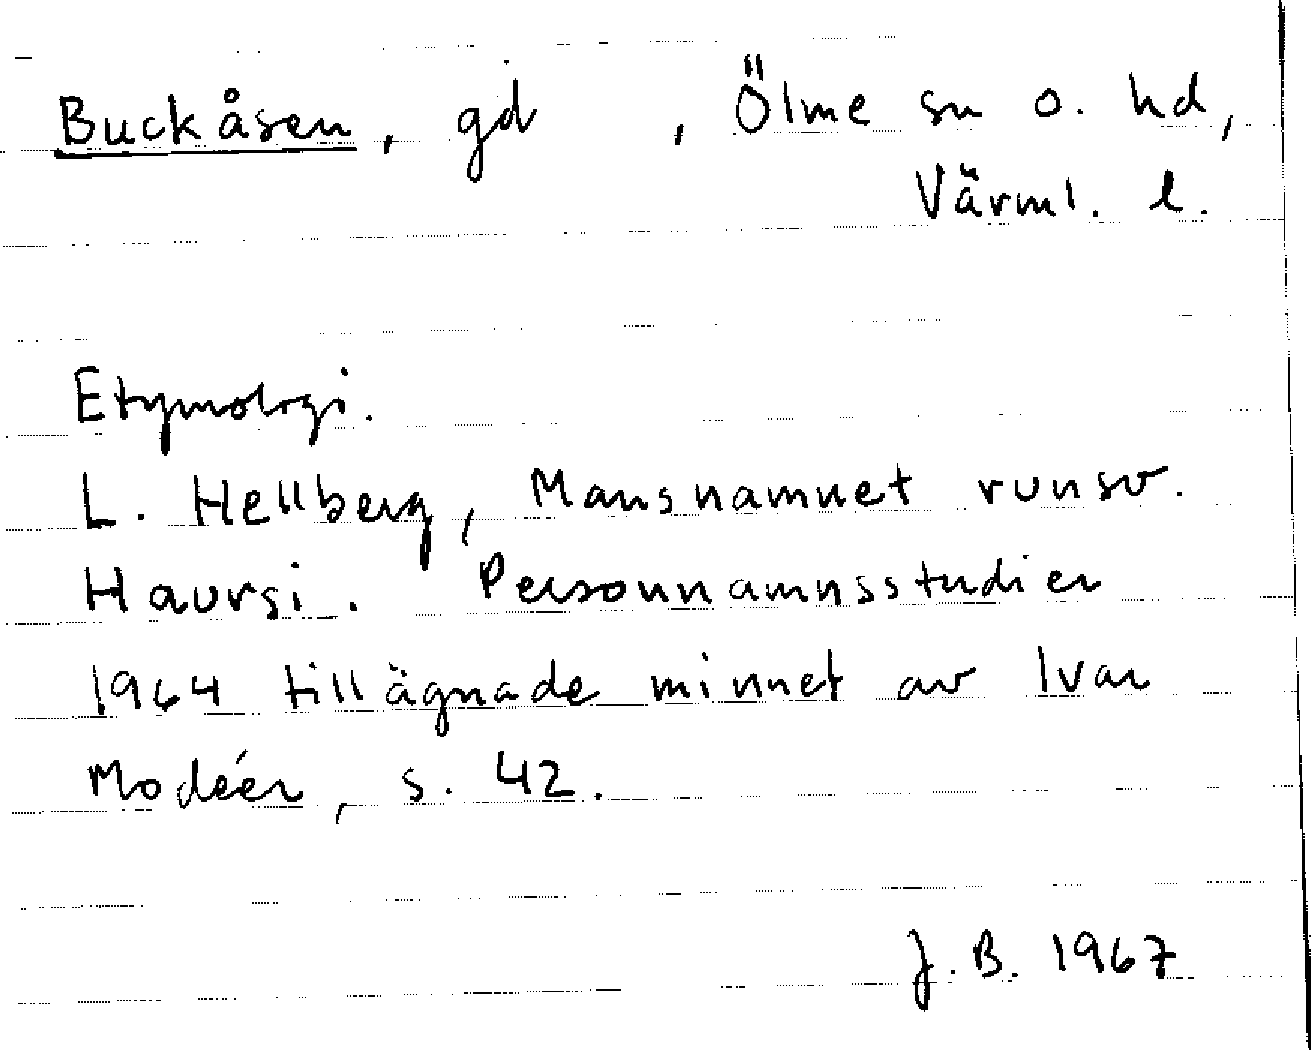 Buckåsen, gd , Ölme sn o. hd,
Värml. l.
Etymologi.
L. Hellberg, Mansnamnet runsv.
Haursi. Personnamnsstudier
1964 tillägnade minnet av Ivar
Modéer, s. 42.
J. B. 1967